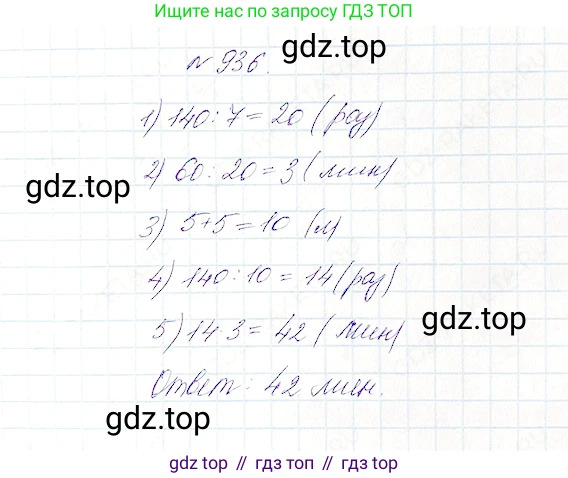 Ищите нас по запросу ГДЗ ТОП
gdz.top
№ 936.
1) 140 : 7 = 20 (раз)
2) 60 : 20 = 3 (мин)
gdz.top
3) 5+5 = 10 (л)
4) 140 : 10 = 14 (раз)
5) 14·3 = 42 (мин)
gdz.top
Ответ: 42 мин.
gdz.top
gdz top // гдз топ // gdz top